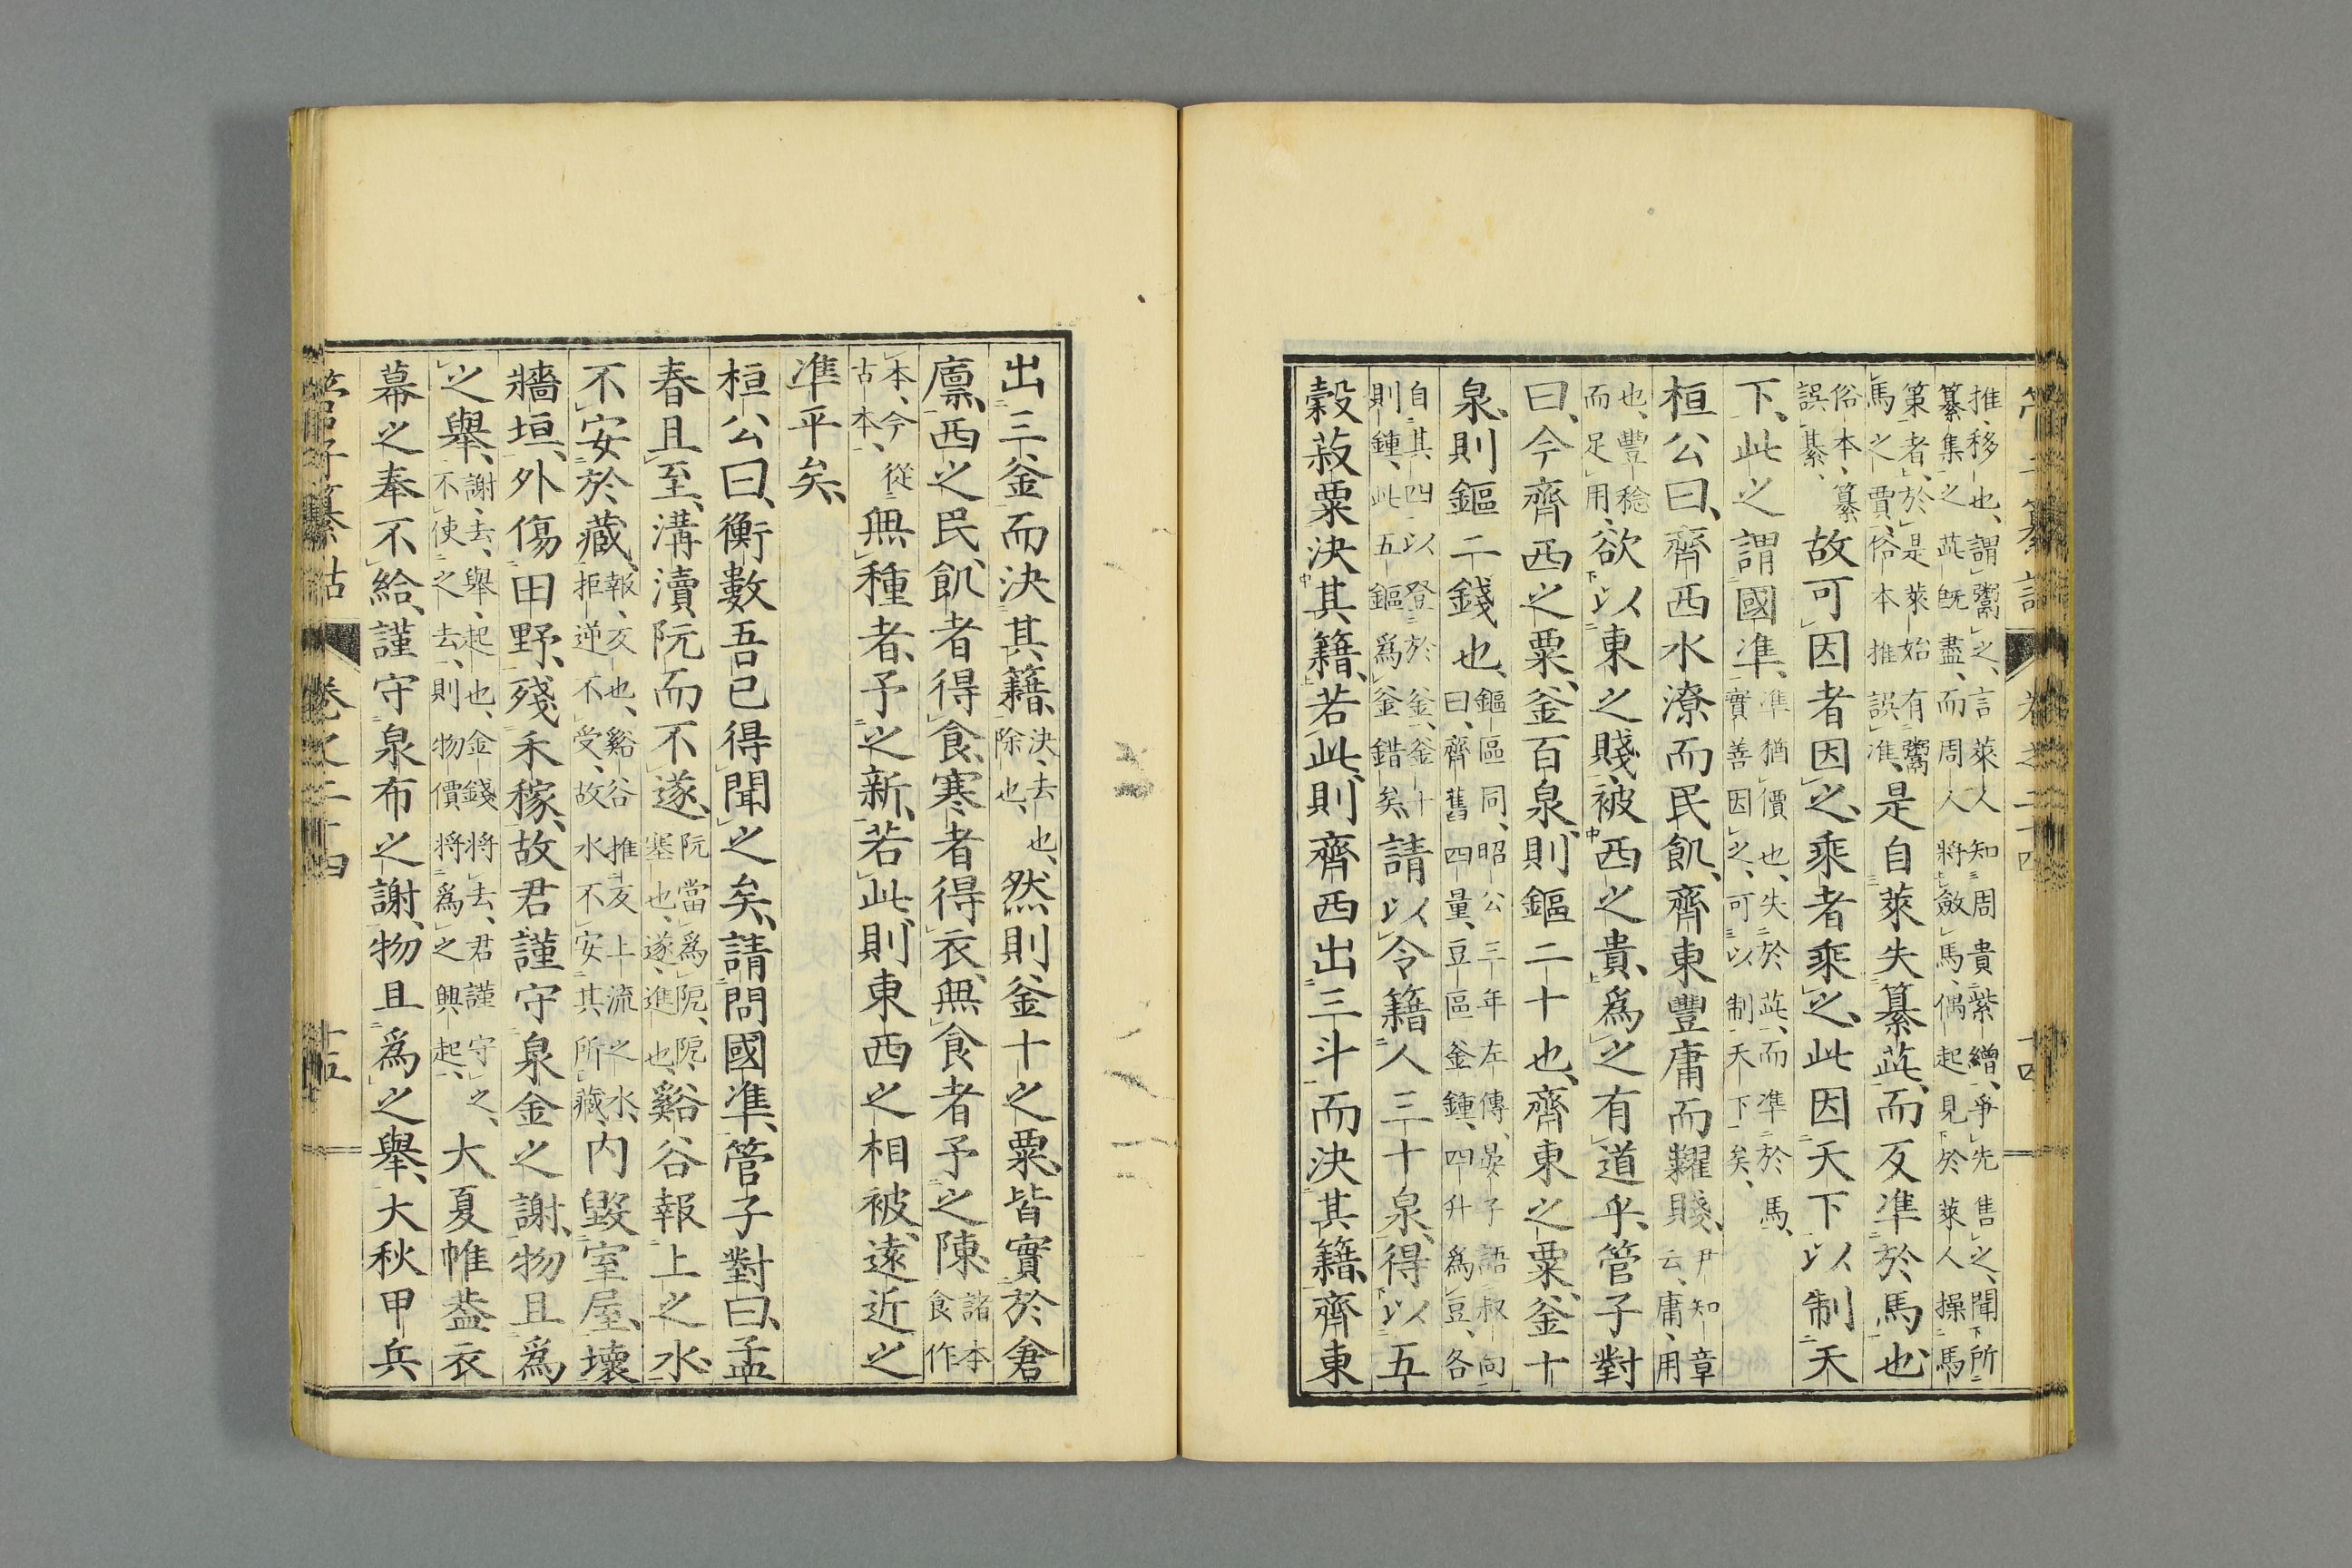 管子纂詁 卷之二十四 十四
推、移也、謂鬻之、言萊人知周貴紫繒、爭先售之、聞所
纂集之茈既盡、而周人將斂馬、偶起見於萊人操馬
筞者、於是萊始有鬻
馬之賈、俗本推誤準、
是自萊失纂茈、而反準於馬也、
俗本、纂
誤綦、
故可因者因之、乘者乘之、此因天下以制天
下、此之謂國準、
準猶價也、失於茈、而準於馬、
實善因之、可以制天下矣、
桓公曰、齊西水潦而民飢、齊東豐庸而糶賤、
尹知章
云、庸、用
也、豐稔
而足用、
欲以東之賤、被西之貴、爲之有道乎、管子對
曰、今齊西之粟、釜百泉、則鏂二十也、齊東之粟、釜十
泉、則鏂二錢也、
鏂區同、昭公三年左傳、晏子語叔向
曰、齊舊四量、豆區釜鍾、四升爲豆、各
自其四、以登於釜、釜十
則鍾、此五鏂爲釜錯矣、
請以令籍人三十泉、得以五
穀菽粟決其籍、若此、則齊西出三斗而決其籍、齊東
出三釜而決其籍、
決、去也、
除也、
然則釜十之粟、皆實於倉
廩、西之民、飢者得食、寒者得衣、無食者予之陳、
諸本
食作
本、今從
古本、
無種者、予之新、若此、則東西之相被、遠近之
準平矣、
桓公曰、衡數吾已得聞之矣、請問國準、管子對曰、孟
春且至、溝瀆阮而不遂、
阮當爲阸、阸、
塞也、遂、進也、
谿谷報上之水、
不安於藏、
報、反也、谿谷推反上流之水、
拒逆不受、故水不安其所藏、
內毀室屋、壞
牆垣、外傷田野、殘禾稼、故君謹守泉金之謝、物且爲
之舉、
謝、去、舉、起也、金錢將去、君謹守之、
不使之去、則物價將爲之興起、
大夏帷蓋衣
幕之奉不給、謹守泉布之謝、物且爲之舉、大秋甲兵
管子纂詁 卷之二十四 十五